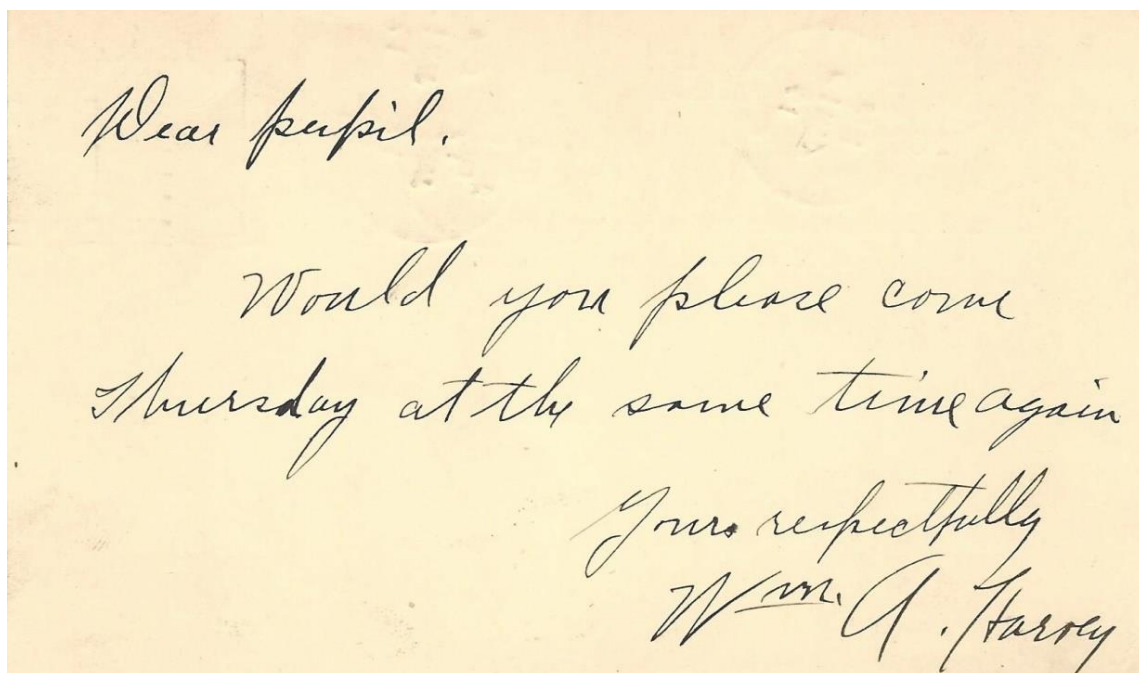 Dear pupil.
Would you please come
Thursday at the same time again
Yours respectfully
Wm. A. Harvey